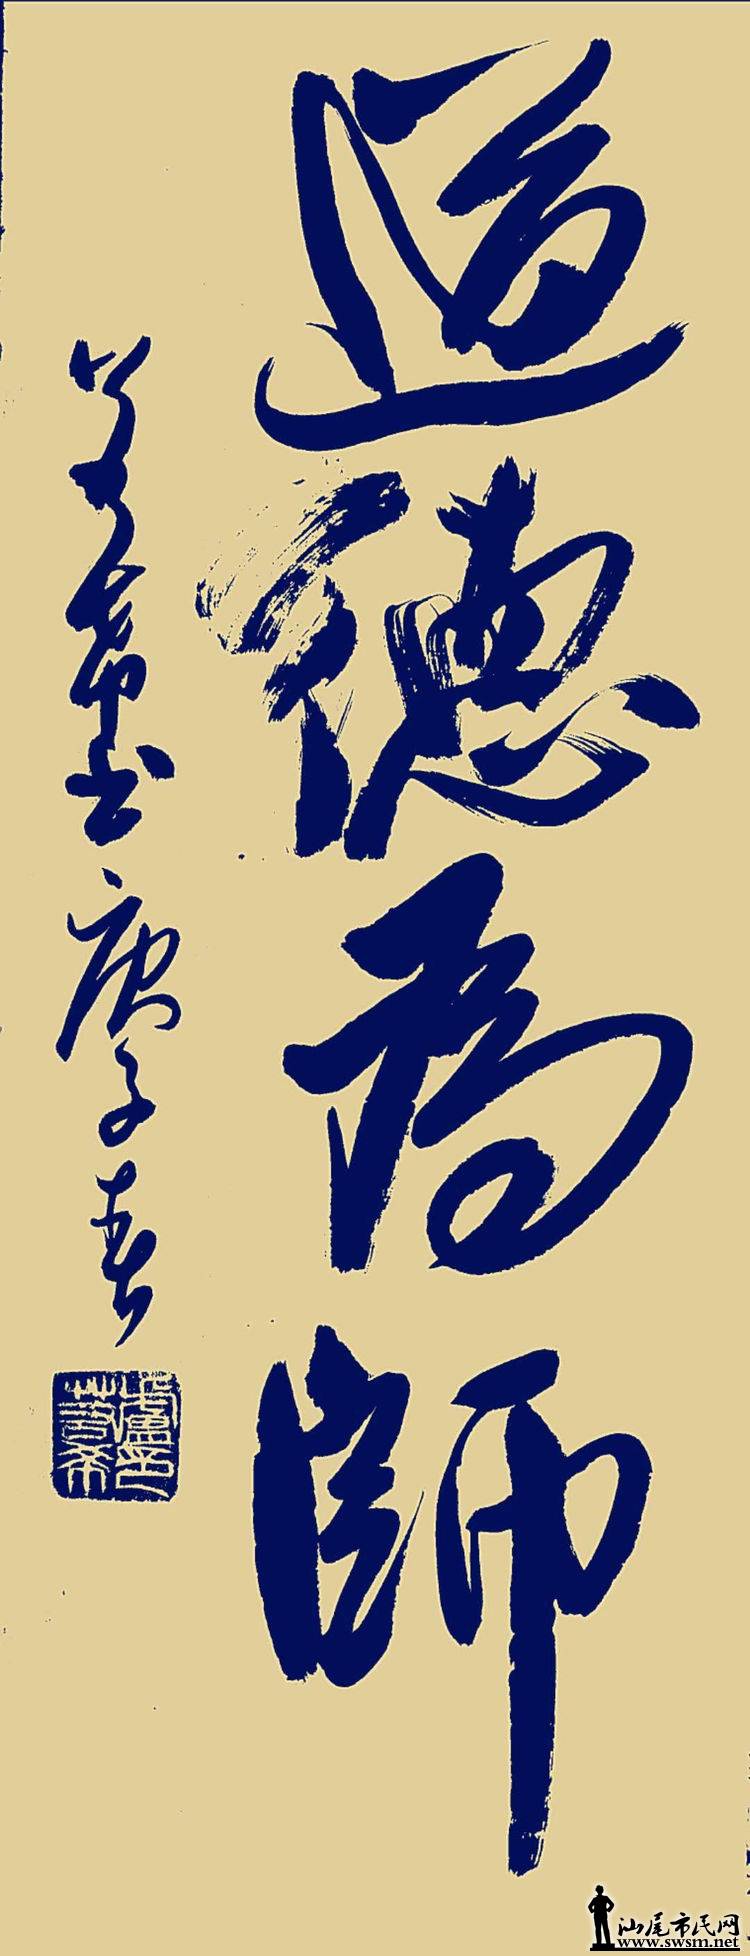 道德為師
希書庚子春
汕尾市民网
www.swsm.net